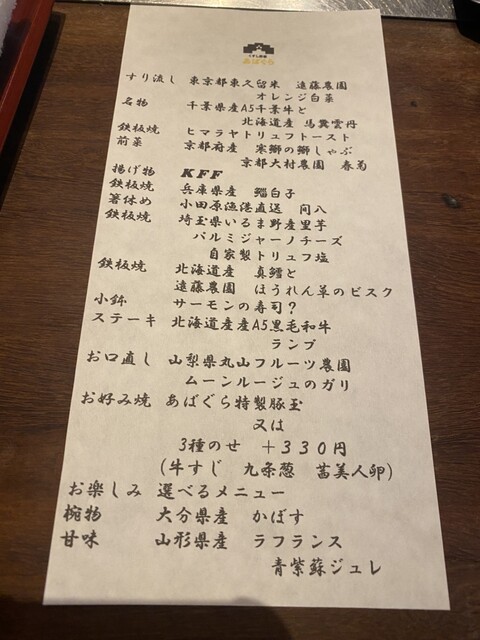 あばぐら
すり流し 東京都東久留米 遠藤農園
オレンジ白菜
名物 千葉県産A5千葉牛と
北海道産 馬糞雲丹
鉄板焼 ヒマラヤトリュフトースト
前菜 京都府産 寒鰤の鰤しゃぶ
京都大村農園 春菊
揚げ物 KFF
鉄板焼 兵庫県産 鯔白子
箸休め 小田原漁港直送 間八
鉄板焼 埼玉県いるま野産里芋
パルミジャーノチーズ
自家製トリュフ塩
鉄板焼 北海道産 真鱈と
遠藤農園 ほうれん草のビスク
小鉢 サーモンの寿司?
ステーキ 北海道産産A5黒毛和牛
ランプ
お口直し 山梨県丸山フルーツ農園
ムーンルージュのガリ
お好み焼 あばぐら特製豚玉
又は
3種のせ +330円
(牛すじ 九条葱 茜美人卵)
お楽しみ 選べるメニュー
椀物 大分県産 かぼす
甘味 山形県産 ラフランス
青紫蘇ジュレ